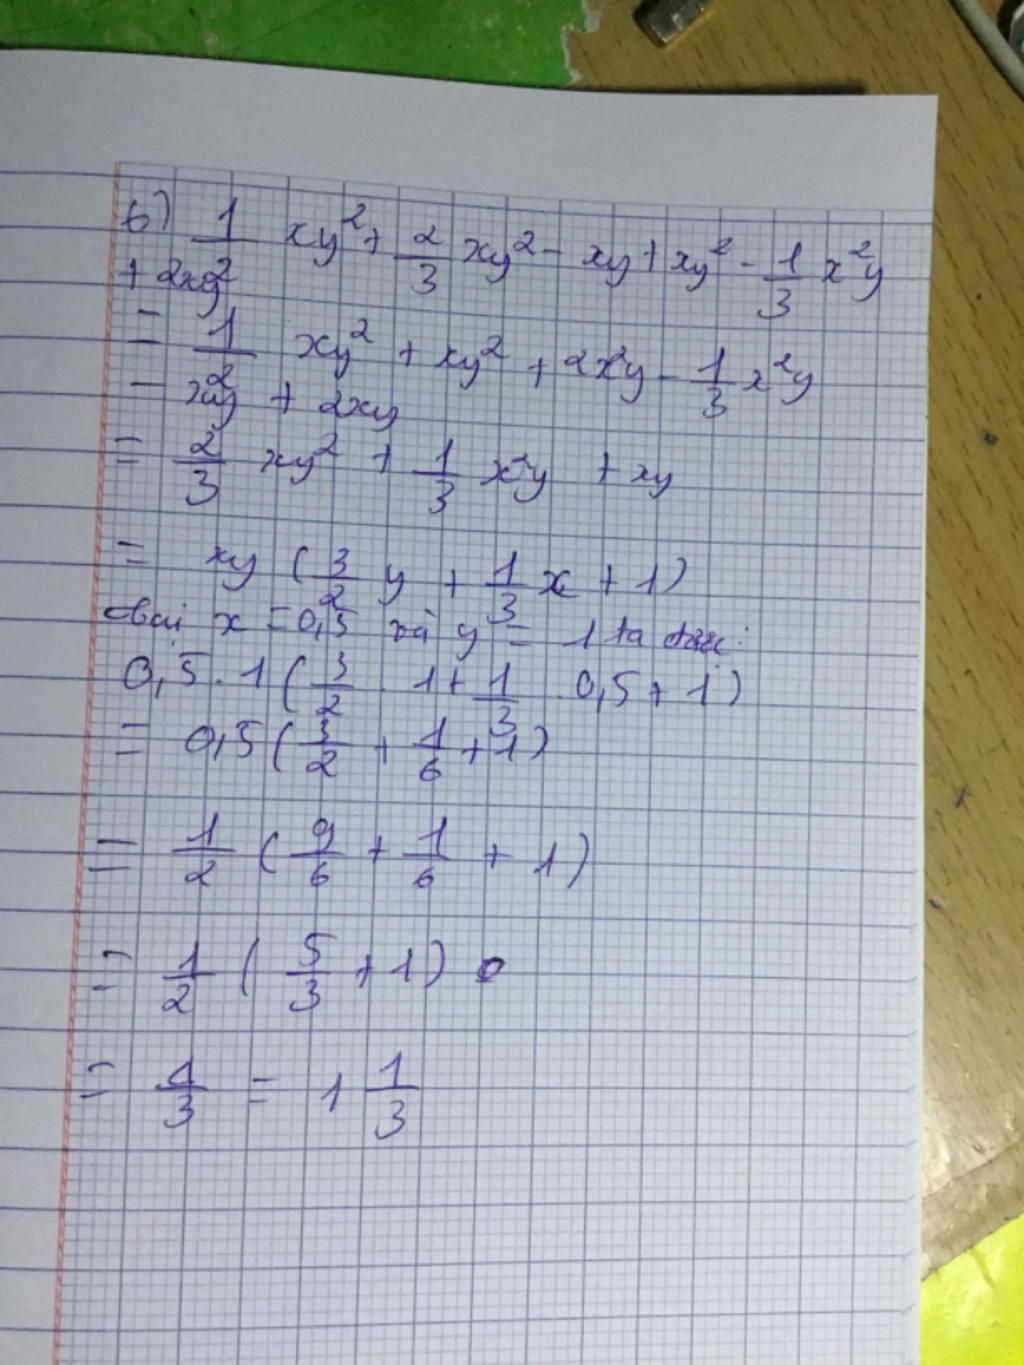 b) 1/2 xy² + 2/3 xy² - xy + xy² - 1/3 x²y
+ 2xy
= 1/2 xy² + xy² + 2x²y - 1/3 x²y
- xy + 2xy
= 2/3 xy² + 1/3 x²y + xy
= xy (3/2 y + 1/3 x + 1)
x = 0,5 và y = 1 ta được:
0,5 . 1 (3/2 . 1 + 1/3 . 0,5 + 1)
= 0,5 (3/2 + 1/6 + 1)
= 1/2 (9/6 + 1/6 + 1)
= 1/2 (5/3 + 1)
= 4/3 = 1 1/3